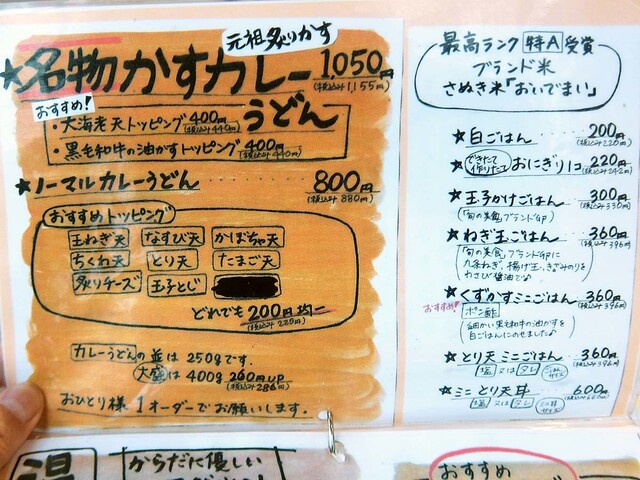 元祖炙りかす
★名物かすカレーうどん 1,050円
(税込み1,155円)
おすすめ!
・大海老天トッピング 400円
(税込み440円)
・黒毛和牛の油かすトッピング 400円
(税込み440円)
★ノーマルカレーうどん 800円
(税込み880円)
おすすめトッピング
玉ねぎ天 なすび天 かぼちゃ天
ちくわ天 とり天 たまご天
炙りチーズ 玉子とじ
どれでも200円均一
(税込み220円)
カレーうどんの並は250gです.
大盛は400g 260円UP
(税込み286円)
おひとり様1オーダーでお願いします.
からだに優しい
最高ランク 特A 受賞
ブランド米
さぬき米「おいでまい」
★白ごはん 200円
(税込み220円)
★できたて作りたておにぎり1コ 220円
(税込み242円)
★玉子かけごはん 300円
(税込み330円)
「旬の美食」ブランド卵
★ねぎ玉ごはん 360円
(税込み396円)
「旬の美食」ブランド卵に
九条ねぎ、揚げ玉、きざみのりを
わさび醤油で
おすすめ!
★くずかすミニごはん 360円
(税込み396円)
ポン酢
細かい黒毛和牛の油かすを
白ごはんにのせました
★とり天ミニごはん 360円
(税込み396円)
塩 又は タレ
★ミニとり天丼 600円
(税込み660円)
塩 又は タレ
おすすめ